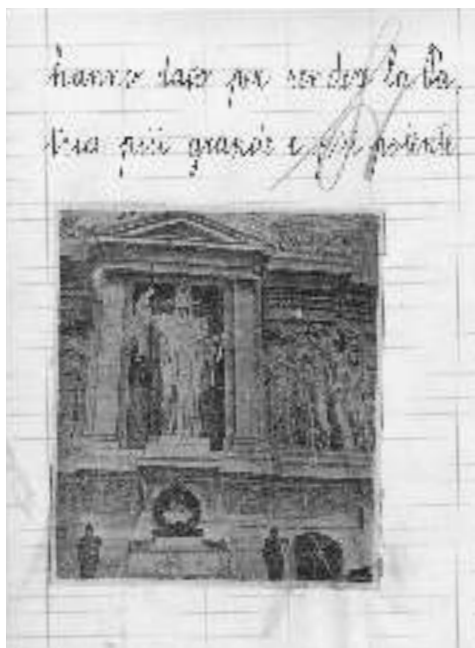 hanno dato per render la Pa,
tria più grande e più potente